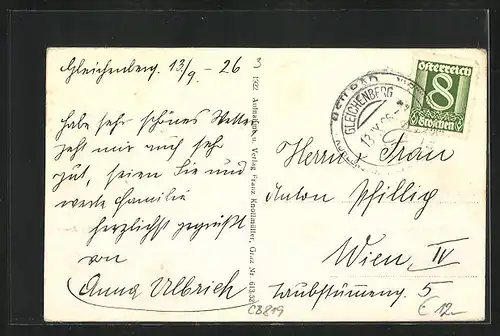 Gleichenberg. 13/9. - 26
3
habe sehr schönes Wetter
geht mir auch sehr
gut, seien Sie und
werte Familie
herzlichst gegrüßt
von
Anna Ulbrich
1922 Aufnahme u. Verlag Franz Knollmüller, Graz Nr.
CB819
GLEICHENBERG
Österreich
8
Groschen
Herrn u. Frau
Anton Pfillig
Wien, IV
Taubstummeng. 5
€ 12.-